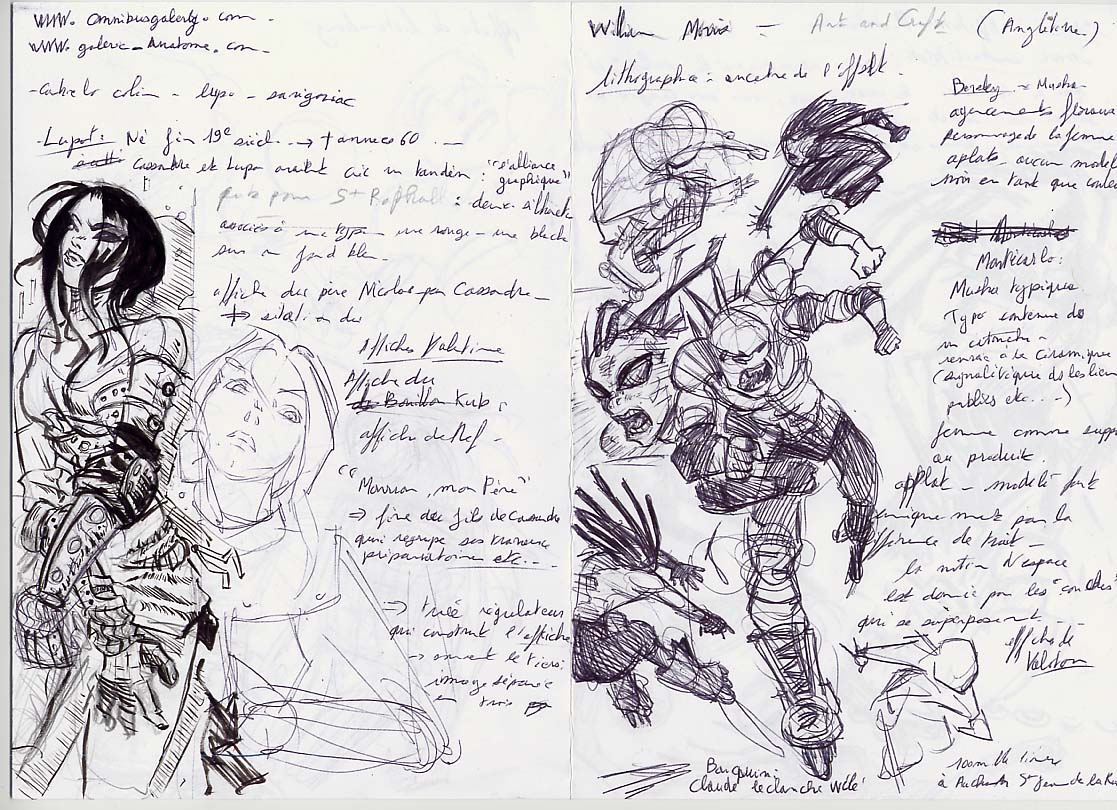 www. omnibusgalerty. com -
www. galerie - Anatome. com -
- colin - lupo - savignac
- Lupot : Né fin 19e siècle → † années 60. -
Cassandre et Lupo avaient créé un tandem : "l'alliance
graphique"
pour St Raphaël : deux silhouettes
associés à une typo - une rouge - une blache
sur un fond bleu -
affiche du père Nicolas par Cassandre -
affiches Valentine
Affiche du
Bouillon Kub :
affiche de Nef -
" Mouron, mon Père "
⇒ livre du fils de Cassandre
qui regroupe ses travaux
préparatoires etc...
→ tracé régulateurs
qui construit l'affiche
→ souvent le tiers :
image séparée
en trois
William Morris - Art and Craft (Angleterre)
lithographia : ancetre de l'offset.
- Mucha -
agencements floraux
personnage de la femme
aplats - aucun modelé
noir en tant que couleur
Montecarlo :
Mucha typique
Typo contenue ds
un cartouche -
renvoie à la Céramique
(signalétique ds les lieux
publics etc...)
femme comme support
au produit.
applat - modelé fait
uniquement par la
différence de trait -
la notion d'espace
est donnée par les "couches"
qui se superposent...
affiche de
Valoton
Claude leclanche
à St Jean de la